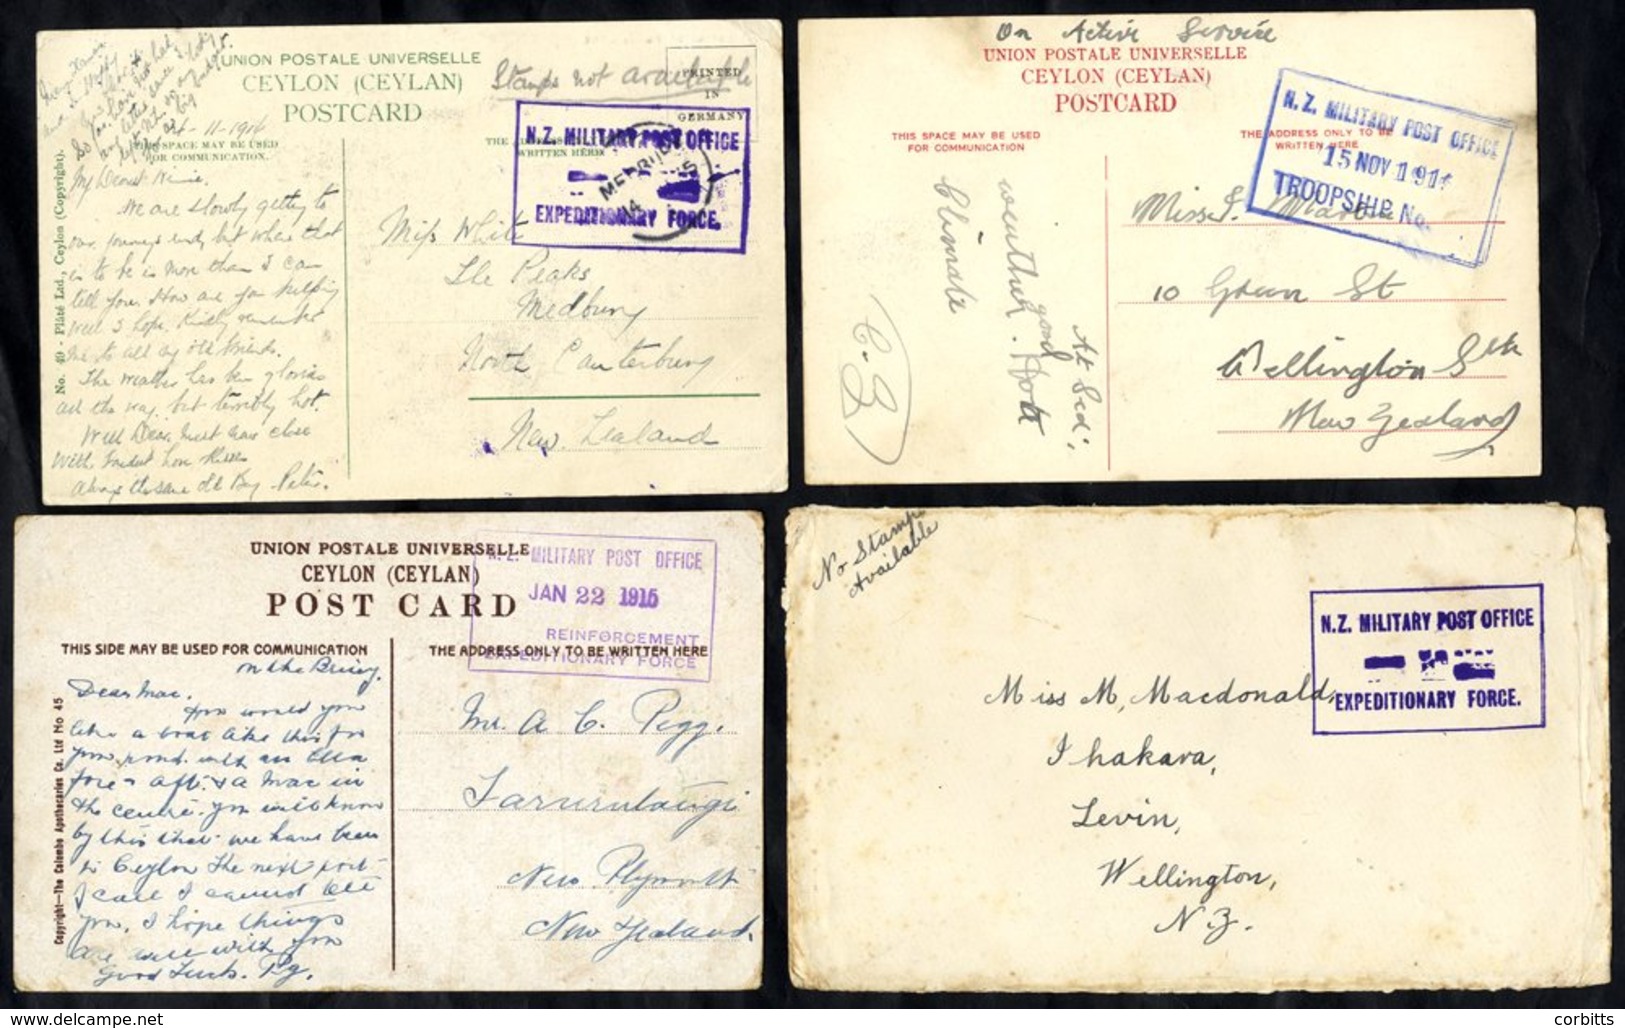 UNION POSTALE UNIVERSELLE
CEYLON (CEYLAN)
POSTCARD
Stamps not available
PRINTED
IN
GERMANY
24-11-1914
THIS SPACE MAY BE USED
FOR COMMUNICATION.
THE ADDRESS
WRITTEN HERE
N.Z. MILITARY POST OFFICE
EXPEDITIONARY FORCE.
No. 49 - Plâté Ltd., Ceylon (Copyright).
My Dearest Winnie.
We are slowly getting to
our journeys end, but where that
is to be is more than I can
tell you. How are you keeping
Well I hope. Kindly remember
me to all my old friends.
The weather has been glorious
all the way, but terribly hot.
Well Dear, must now close
With fondest love Kisses
Always the same old Boy Peter.
Miss White
The Peaks
Medbury
North Canterbury
New Zealand
On Active Service
UNION POSTALE UNIVERSELLE
CEYLON (CEYLAN)
POSTCARD
THIS SPACE MAY BE USED
FOR COMMUNICATION
THE ADDRESS ONLY TO BE
WRITTEN HERE
N.Z. MILITARY POST OFFICE
15 NOV 1914
TROOPSHIP No.
At Sea;
good
weather. Hot
Climate
10 Green St
Wellington Sth
New Zealand
UNION POSTALE UNIVERSELLE
CEYLON (CEYLAN)
POST CARD
THIS SIDE MAY BE USED FOR COMMUNICATION
THE ADDRESS ONLY TO BE WRITTEN HERE
N.Z. MILITARY POST OFFICE
JAN 22 1915
REINFORCEMENT
EXPEDITIONARY FORCE
Copyright—The Colombo Apothecaries Co. Ltd No 45
on the Briny.
Dear Mac.
How would you
like a boat like this for
your pond. with an
fore & aft. & a Mac in
the centre. you will know
by this that we have been
to Ceylon The next port
of call I cannot tell
you, I hope things
are well with you
Good Luck. Pg.
Mr. A C. Pegg.
New Plymouth
New Zealand.
No Stamps
Available
N.Z. MILITARY POST OFFICE
EXPEDITIONARY FORCE.
Miss M, Macdonald,
Ihakara,
Levin,
Wellington,
N.Z.
© corbitts